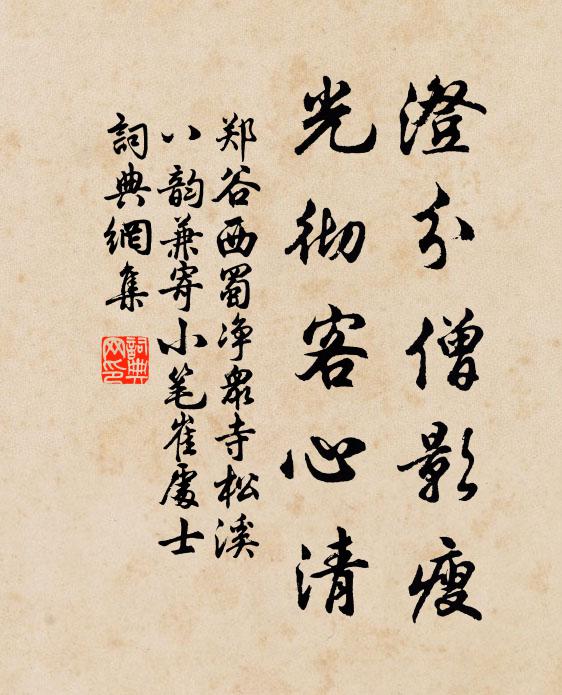 澄分僧影瘦
光彻客心清
郑谷西蜀净众寺松溪
八韵兼寄小笔崔处士
词典网集
詞典网印